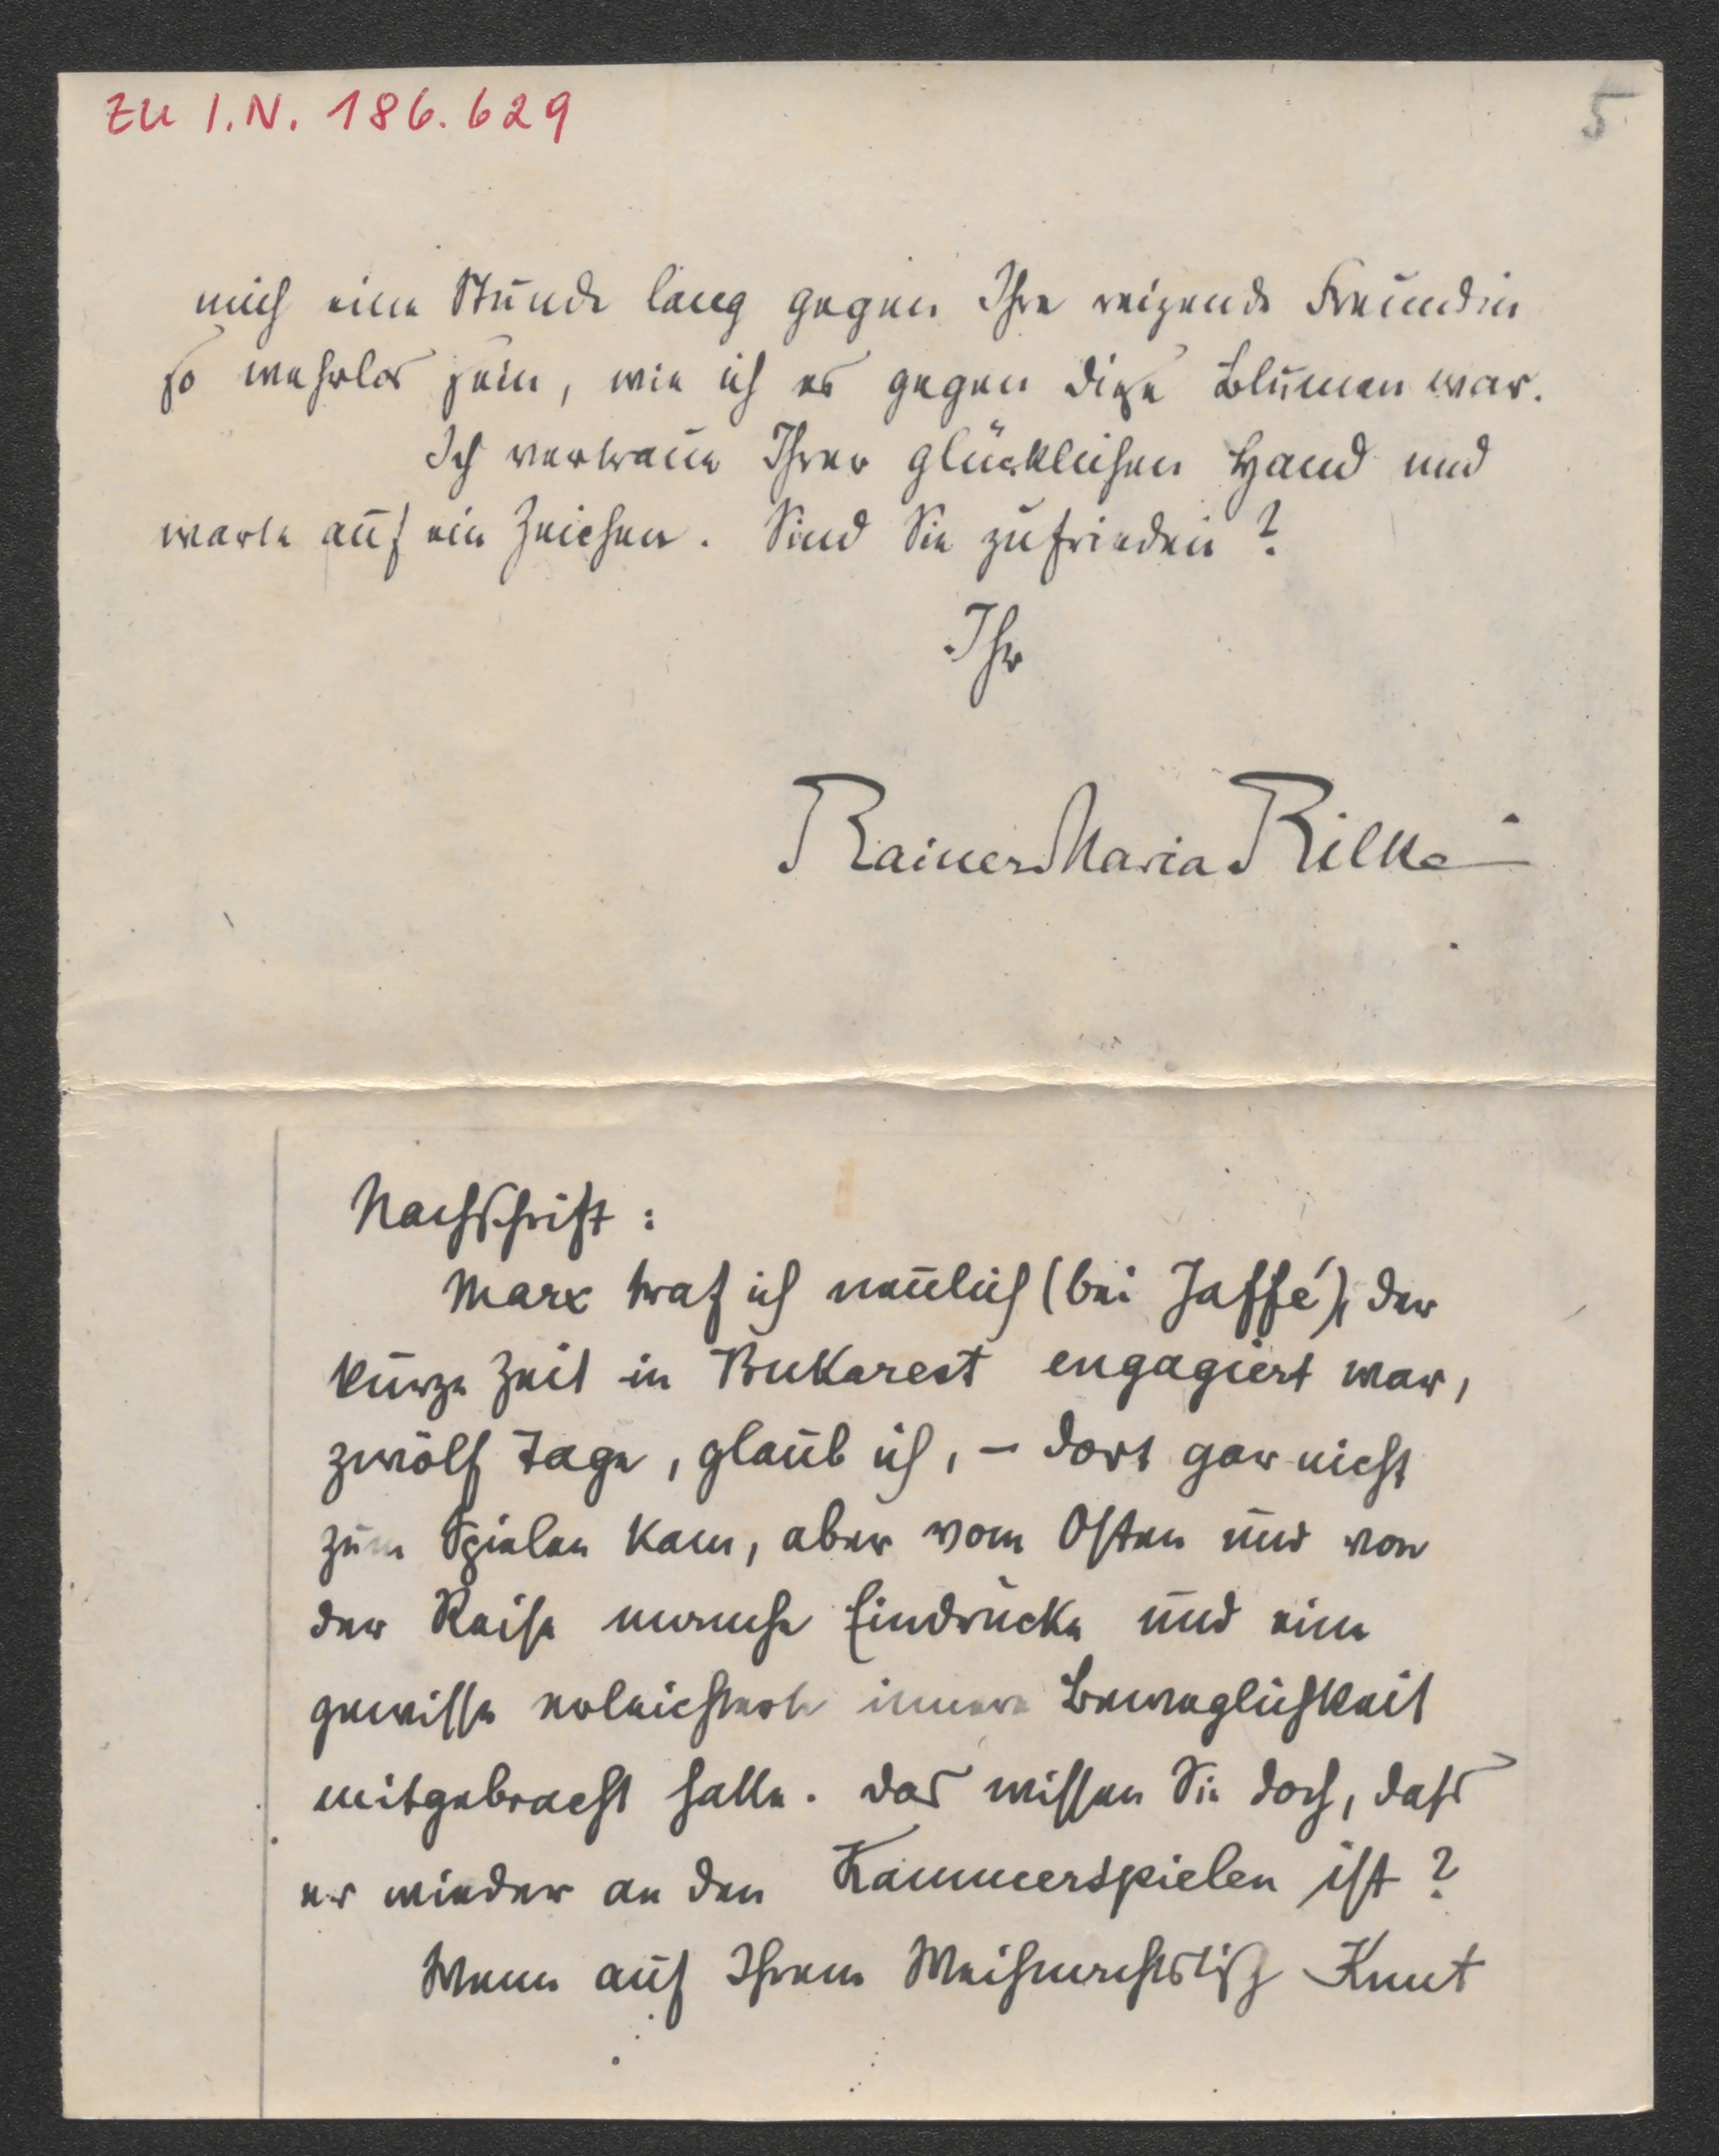 ZU I.N. 186.629
5
mich eine Stunde lang gegen Ihre reizende Freundin
so wehrlos sein, wie ich es gegen diese Blumen war.
Ich vertraue Ihrer glücklichen Hand und
warte auf ein Zeichen. Sind Sie zufrieden?
Ihr
Rainer Maria Rilke
Nachschrift:
Marx traf ich neulich (bei Jaffé), der
kurze Zeit in Bukarest engagiert war,
zwölf Tage, glaub ich, – dort gar nicht
zum Spielen kam, aber vom Osten und von
der Reise manche Eindrücke und eine
gewisse erleichterte innere Beweglichkeit
mitgebracht hatte. Das wissen Sie doch, dass
er wieder an den Kammerspielen ist?
Wenn auf Ihrem Weihnachtstisch Knut